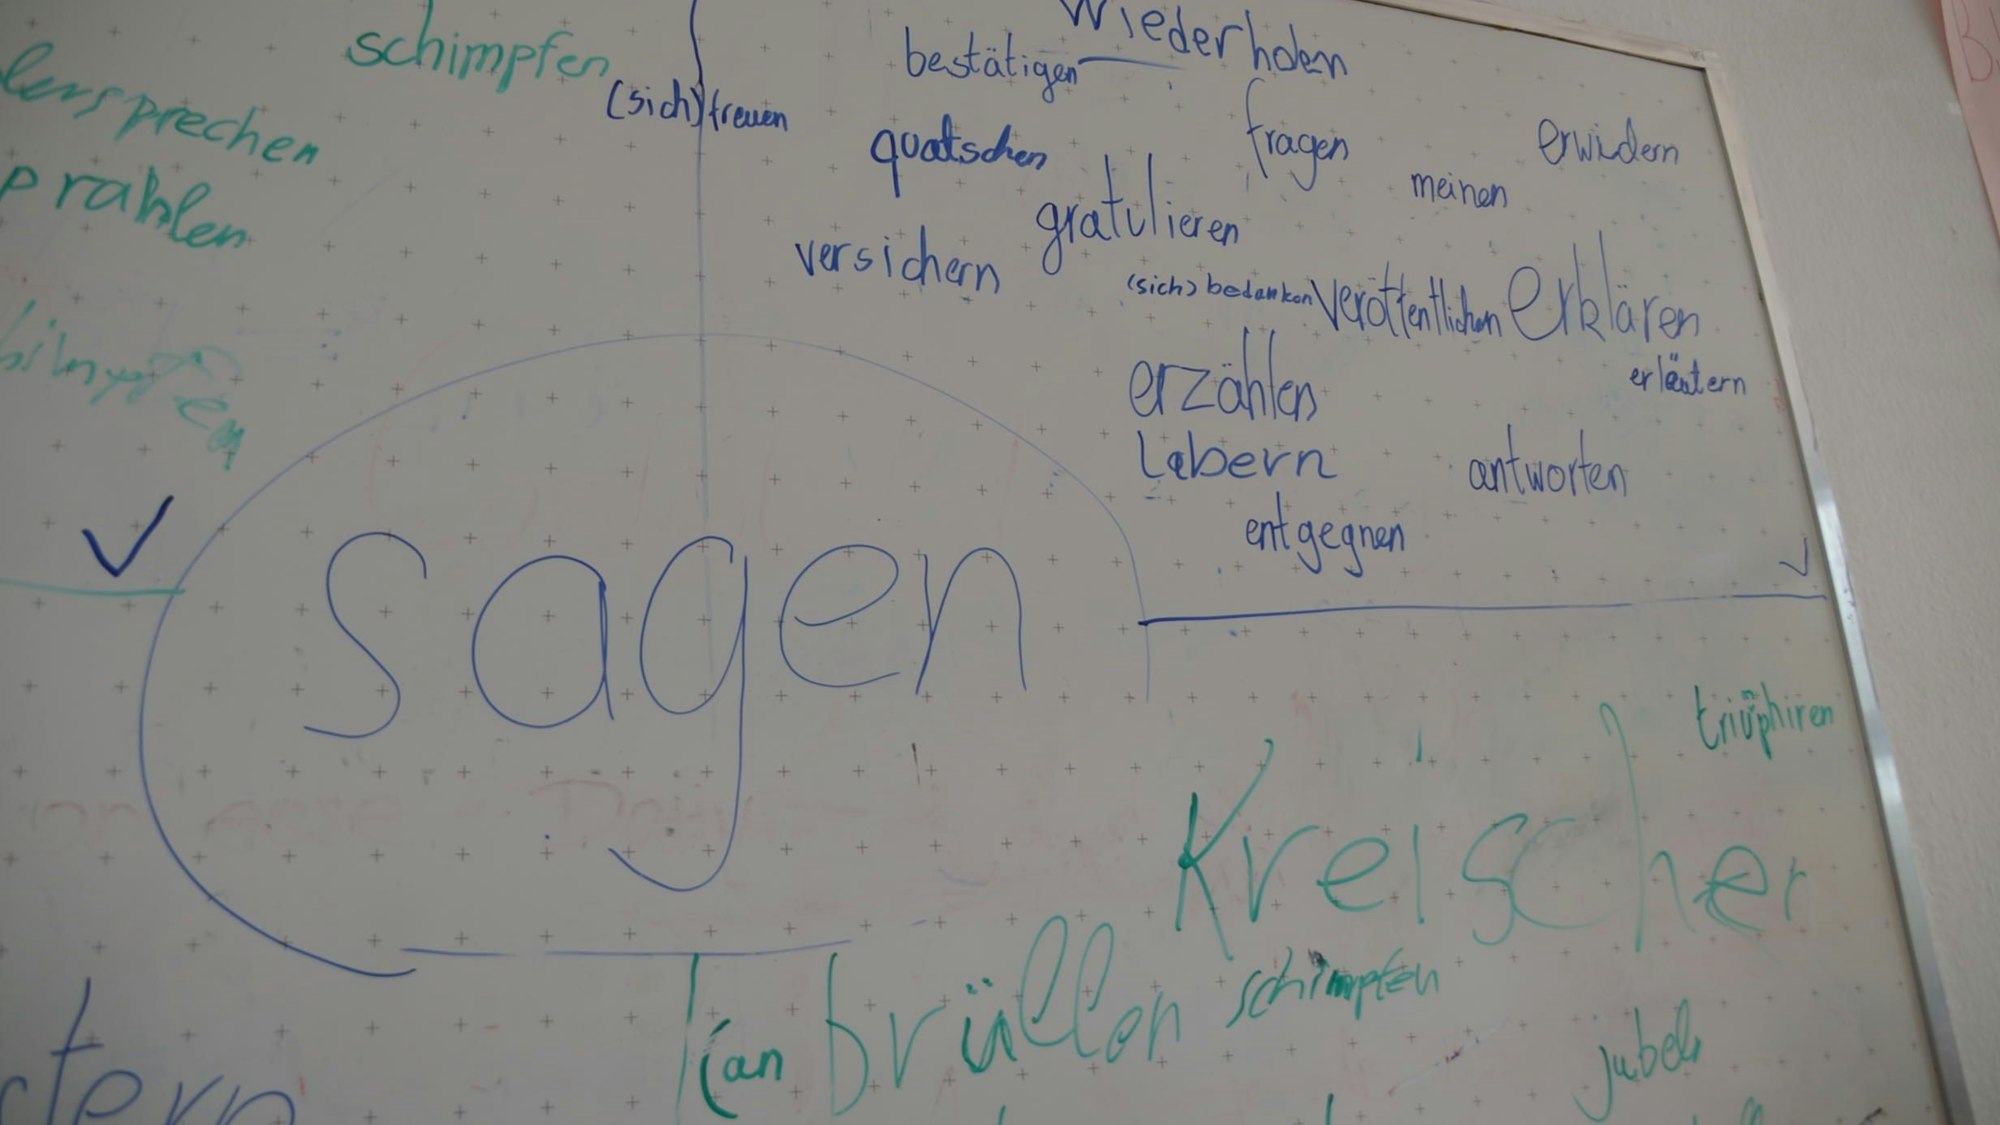 schimpfen
sprechen
prahlen
wiederholen
bestätigen
(sich) freuen
quatschen
fragen
erwidern
meinen
gratulieren
versichern
(sich) bedanken
veröffentlichen
erklären
erläutern
erzählen
Labern
antworten
entgegnen
sagen
triüphiren
Kreischen
(an brüllen
schimpfen
jubeln
stern